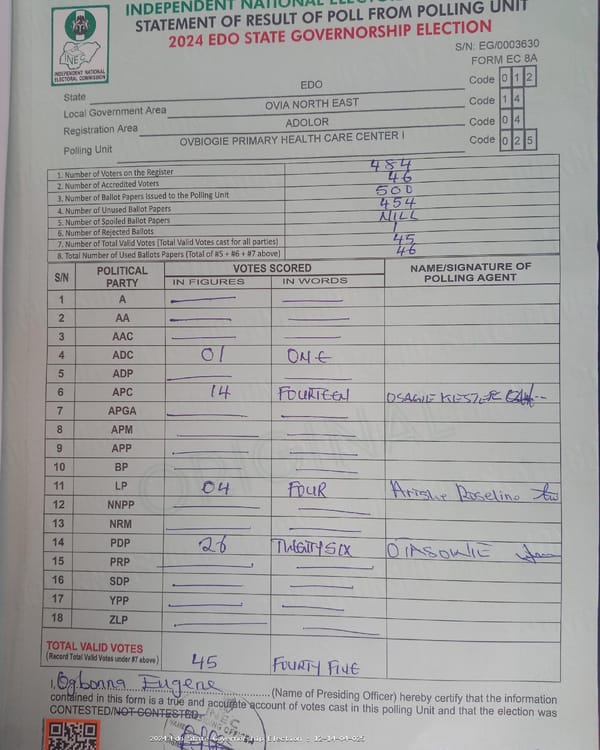 INDEPENDENT NATIONAL ELECTORAL
STATEMENT OF RESULT OF POLL FROM POLLING UNIT
2024 EDO STATE GOVERNORSHIP ELECTION
INEC
INDEPENDENT NATIONAL
ELECTORAL COMMISSION
S/N: EG/0003630
FORM EC 8A
State EDO Code 0 1 2
Local Government Area OVIA NORTH EAST Code 1 4
Registration Area ADOLOR Code 0 4
Polling Unit OVBIOGIE PRIMARY HEALTH CARE CENTER I Code 0 2 5
1. Number of Voters on the Register 484
2. Number of Accredited Voters 46
3. Number of Ballot Papers Issued to the Polling Unit 500
4. Number of Unused Ballot Papers 454
5. Number of Spoiled Ballot Papers NILL
6. Number of Rejected Ballots 1
7. Number of Total Valid Votes (Total Valid Votes cast for all parties) 45
8. Total Number of Used Ballots Papers (Total of #5 + #6 + #7 above) 46
S/N POLITICAL PARTY VOTES SCORED NAME/SIGNATURE OF POLLING AGENT
IN FIGURES IN WORDS
1 A
2 AA
3 AAC
4 ADC 01 ONE
5 ADP
6 APC 14 FOURTEEN OSAGIE KIESTER
7 APGA
8 APM
9 APP
10 BP
11 LP 04 FOUR Roselino
12 NNPP
13 NRM
14 PDP 26 TWENTY SIX
15 PRP
16 SDP
17 YPP
18 ZLP
ORIGINAL
TOTAL VALID VOTES 45 FOURTY FIVE
(Record Total Valid Votes under #7 above)
I, Ogbonna Eugene (Name of Presiding Officer) hereby certify that the information
contained in this form is a true and accurate account of votes cast in this polling Unit and that the election was
CONTESTED/NOT CONTESTED
INEC
2024 Edo State Governorship Election : 12-14-04-025